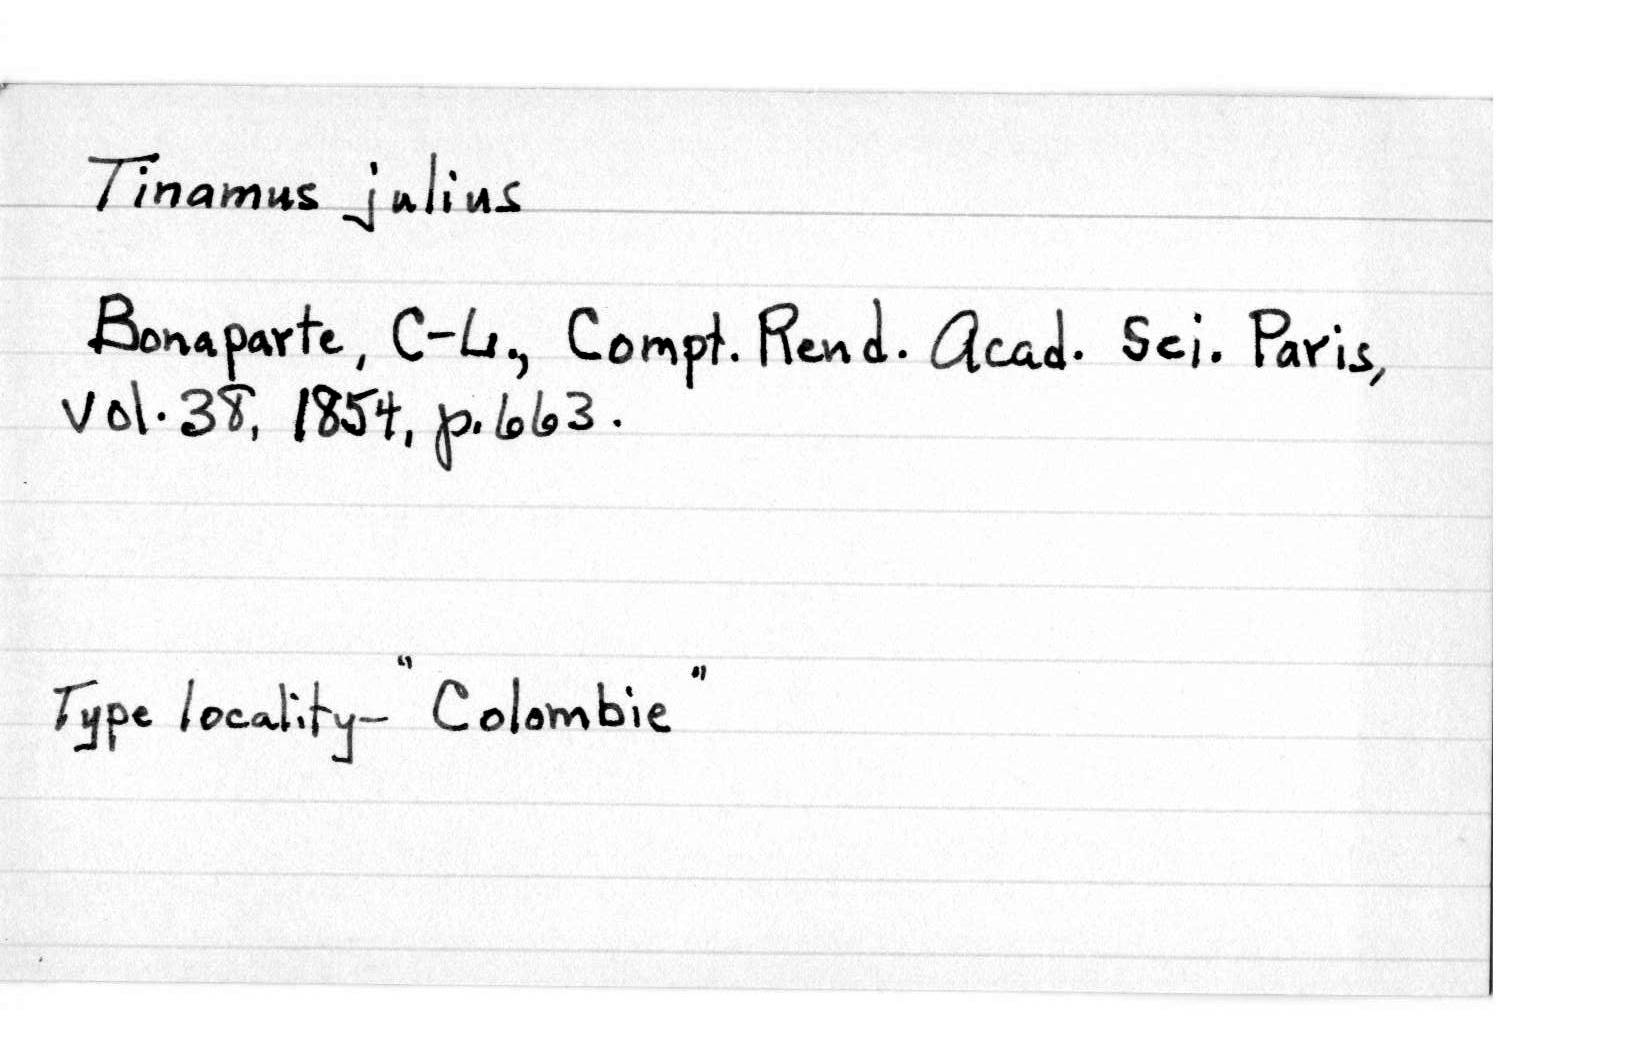 Tinamus julius
Bonaparte, C-L., Compt. Rend. Acad. Sci. Paris,
vol. 38, 1854, p. 663.
Type locality - "Colombie"